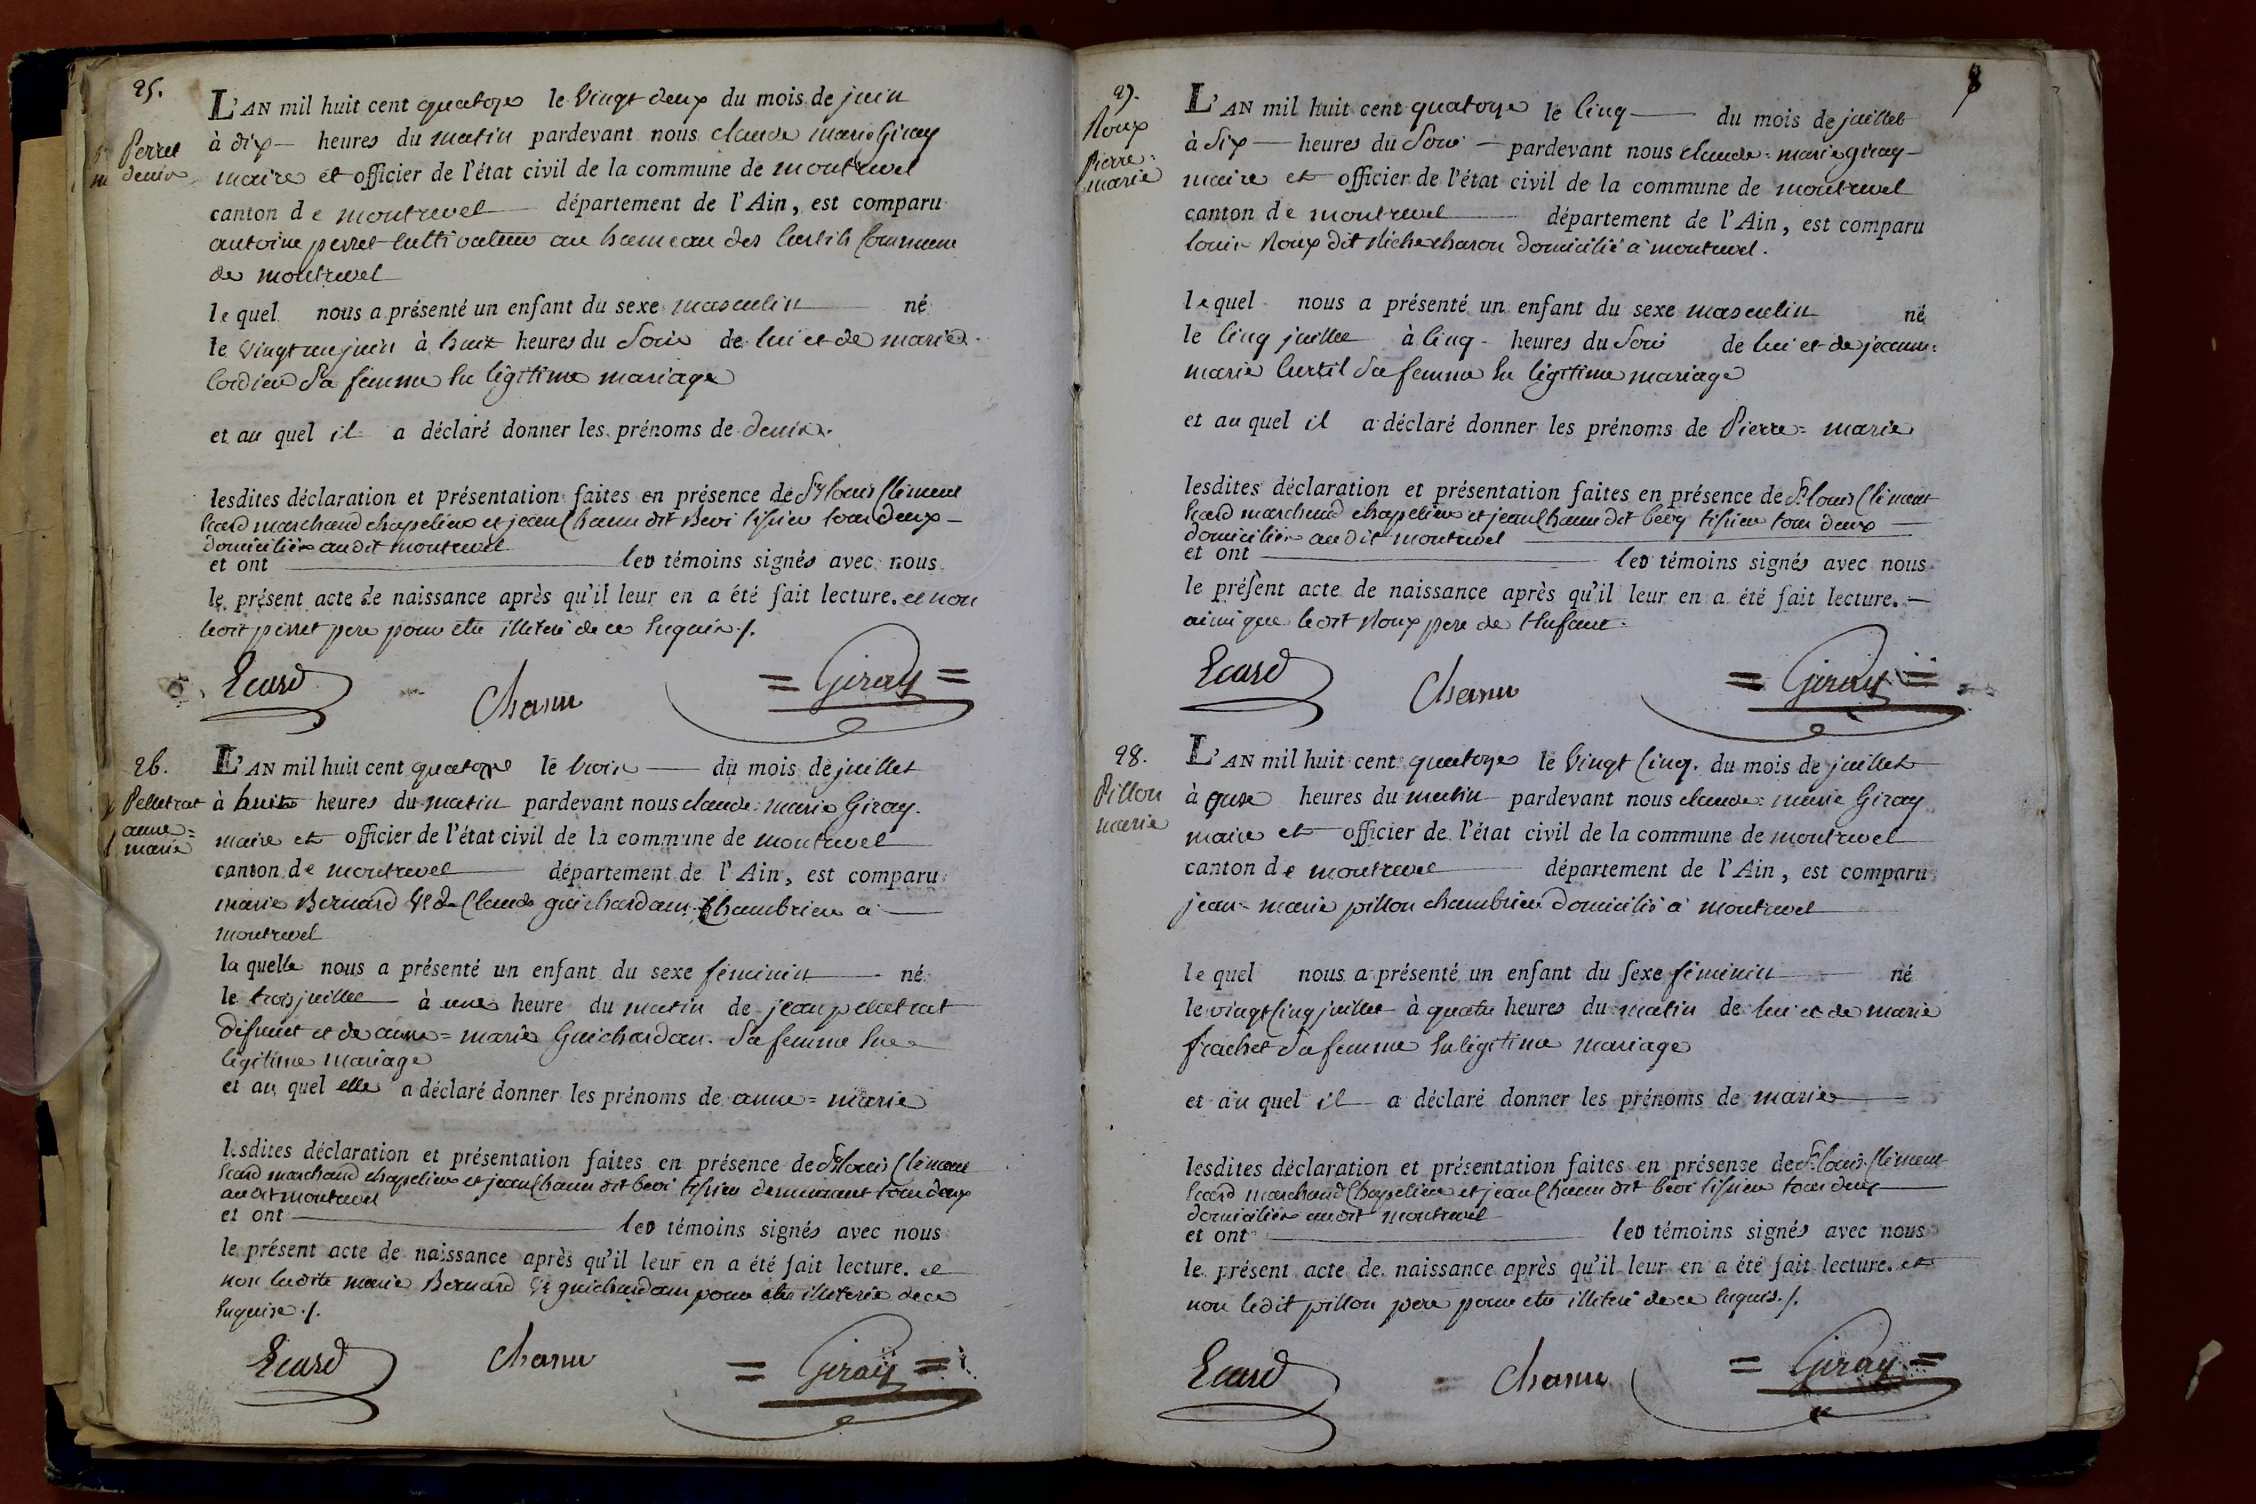 25.
Perret
denis
L'AN mil huit cent quatorze le vingt deux du mois de juin
à dix heures du matin pardevant nous claude marie Giray
maire et officier de l'état civil de la commune de montrevel
canton de montrevel département de l'Ain, est comparu
antoine perret cultivateur au hameau des curtils commune
de montrevel
lequel nous a présenté un enfant du sexe masculin né
le vingt un juin à huit heures du soir de lui et de marie
cordier sa femme en légitime mariage
et au quel il a déclaré donner les prénoms de denis.
lesdites déclaration et présentation faites en présence de Sr louis Clément
Ecard marchand chapelier et jean Chanu dit Bevi tissier tous deux
domiciliés audit montrevel
et ont les témoins signés avec nous
le présent acte de naissance après qu'il leur en a été fait lecture. et non
ledit perret pere pour etre illiteré de ce enquis ./.
Ecard Chanu = Giray =
26.
Pelletrat
anne=
marie
L'AN mil huit cent quatorze le trois du mois de juillet
à huit heures du matin pardevant nous claude=marie Giray.
maire et officier de l'état civil de la commune de montrevel
canton de montrevel département de l'Ain, est comparu
marie Bernard Ve de Claude guichardan Chambrier a
montrevel
la quelle nous a présenté un enfant du sexe féminin né
le trois juillet à une heure du matin de jean pelletrat
défunct et de anne=marie Guichardan. sa femme en
légitime mariage
et au quel elle a déclaré donner les prénoms de anne=marie
lesdites déclaration et présentation faites en présence de Sr louis Clément
Ecard marchand chapelier et jean Chanu dit bevi tissier demeurant tous deux
audit montrevel
et ont les témoins signés avec nous
le présent acte de naissance après qu'il leur en a été fait lecture. et
non ladite marie Bernard Ve guichardan pour etre illiterée de ce
enquise ./.
Ecard Chanu = Giray =
27.
Roux
Pierre=
marie
L'AN mil huit cent quatorze le cinq du mois de juillet
à six heures du soir pardevant nous claude=marie giray
maire et officier de l'état civil de la commune de montrevel
canton de montrevel département de l'Ain, est comparu
louis Roux dit domicilié à montrevel.
lequel nous a présenté un enfant du sexe masculin né
le cinq juillet à cinq heures du soir de lui et de jeanne=
marie Curtil sa femme en légitime mariage
et au quel il a déclaré donner les prénoms de Pierre=marie
lesdites déclaration et présentation faites en présence de Sr louis Clément
Ecard marchand chapelier et jean Chanu dit bevy tissier tous deux
domiciliés audit montrevel
et ont les témoins signés avec nous
le présent acte de naissance après qu'il leur en a été fait lecture.
ainsi que ledit Roux pere de l'enfant.
Ecard Chanu = Giray =
28.
Pillon
marie
L'AN mil huit cent quatorze le vingt cinq. du mois de juillet
à onze heures du matin pardevant nous claude=marie Giray
maire et officier de l'état civil de la commune de montrevel
canton de montrevel département de l'Ain, est comparu
jean=marie pillon chambrier domicilié à montrevel
lequel nous a présenté un enfant du sexe féminin né
le vingt cinq juillet à quatre heures du matin de lui et de marie
frachet sa femme en légitime mariage
et au quel il a déclaré donner les prénoms de marie
lesdites déclaration et présentation faites en présence de Sr louis Clément
Ecard marchand Chapelier et jean Chanu dit bevi tissier tous deux
domiciliés audit montrevel
et ont les témoins signés avec nous
le présent acte de naissance après qu'il leur en a été fait lecture. et
non ledit pillon pere pour etre illiteré de ce enquis ./.
Ecard Chanu = Giray =